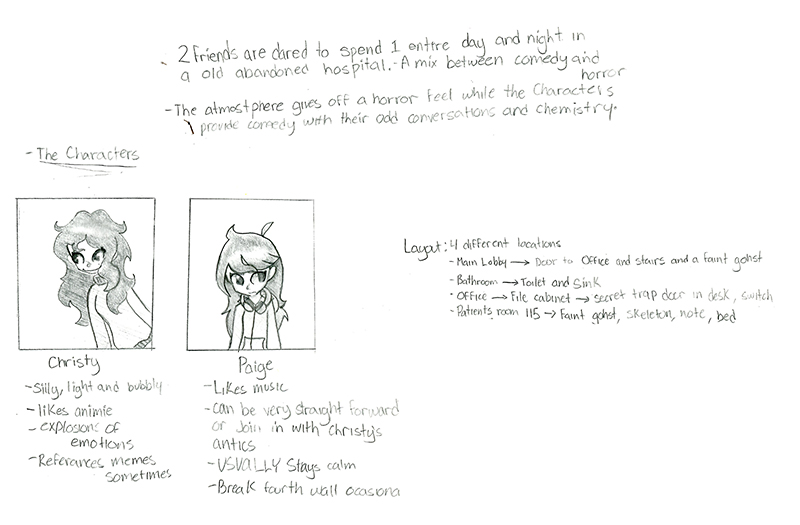 - 2 friends are dared to spend 1 entire day and night in
a old abandoned hospital. - A mix between comedy and
horror
- The atmostphere gives off a horror feel while the Characters
provide comedy with their odd conversations and chemistry.
- The Characters
Christy
- Silly, light and bubbly
- likes animie
- explosions of
emotions
- Referances memes
sometimes
Paige
- Likes music
- can be very straight forward
or Join in with Christy's
antics
- USUALLY stays calm
- Break fourth wall ocasiona
Layout: 4 different locations
- Main Lobby → Door to Office and stairs and a faint gohst
- Bathroom → Toilet and Sink
- Office → File cabinet → secret trap door in desk, switch
- Patients room 115 → Faint gohst, skeleton, note, bed